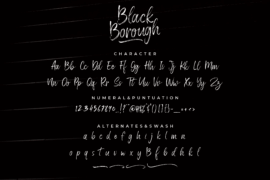 Black
Borough
CHARACTER
Aa Bb Cc Dd Ee Ff Gg Hh Ii Jj Kk Ll Mm
Nn Oo Pp Qq Rr Ss Tt Uu Vv Ww Xx Yy Zz
NUMERAL&PUNTUATION
1234567890
ALTERNATES&SWASH
a b c d e f g h i j k l m n
o p q r s t u v w x y z